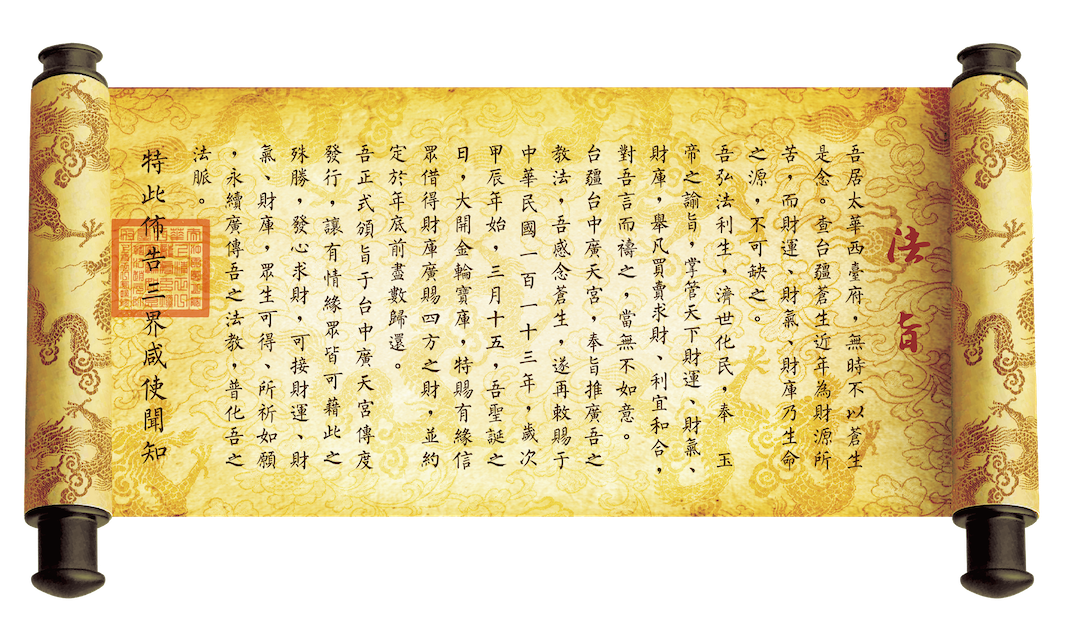 法旨
吾居太華西臺府，無時不以蒼生
是念。查台疆蒼生近年為財源所
苦，而財運、財氣、財庫乃生命
之源，不可缺之。
吾弘法利生，濟世化民，奉　玉
帝之諭旨，掌管天下財運、財氣、
財庫，舉凡買賣求財、利宜和合，
對吾言而禱之，當無不如意。
台疆台中廣天宮，奉旨推廣吾之
教法，吾感念蒼生，遂再敕賜于
中華民國一百一十三年，歲次
甲辰年始，三月十五，吾聖誕之
日，大開金輪寶庫，特賜有緣信
眾借得財庫廣賜四方之財，並約
定於年底前盡數歸還。
吾正式頒旨于台中廣天宮傳度
發行，讓有情緣眾皆可藉此之
殊勝，發心求財，可接財運、財
氣、財庫，眾生可得、所祈如願
，永續廣傳吾之法教，普化吾之
法脈。
特此佈告三界咸使聞知